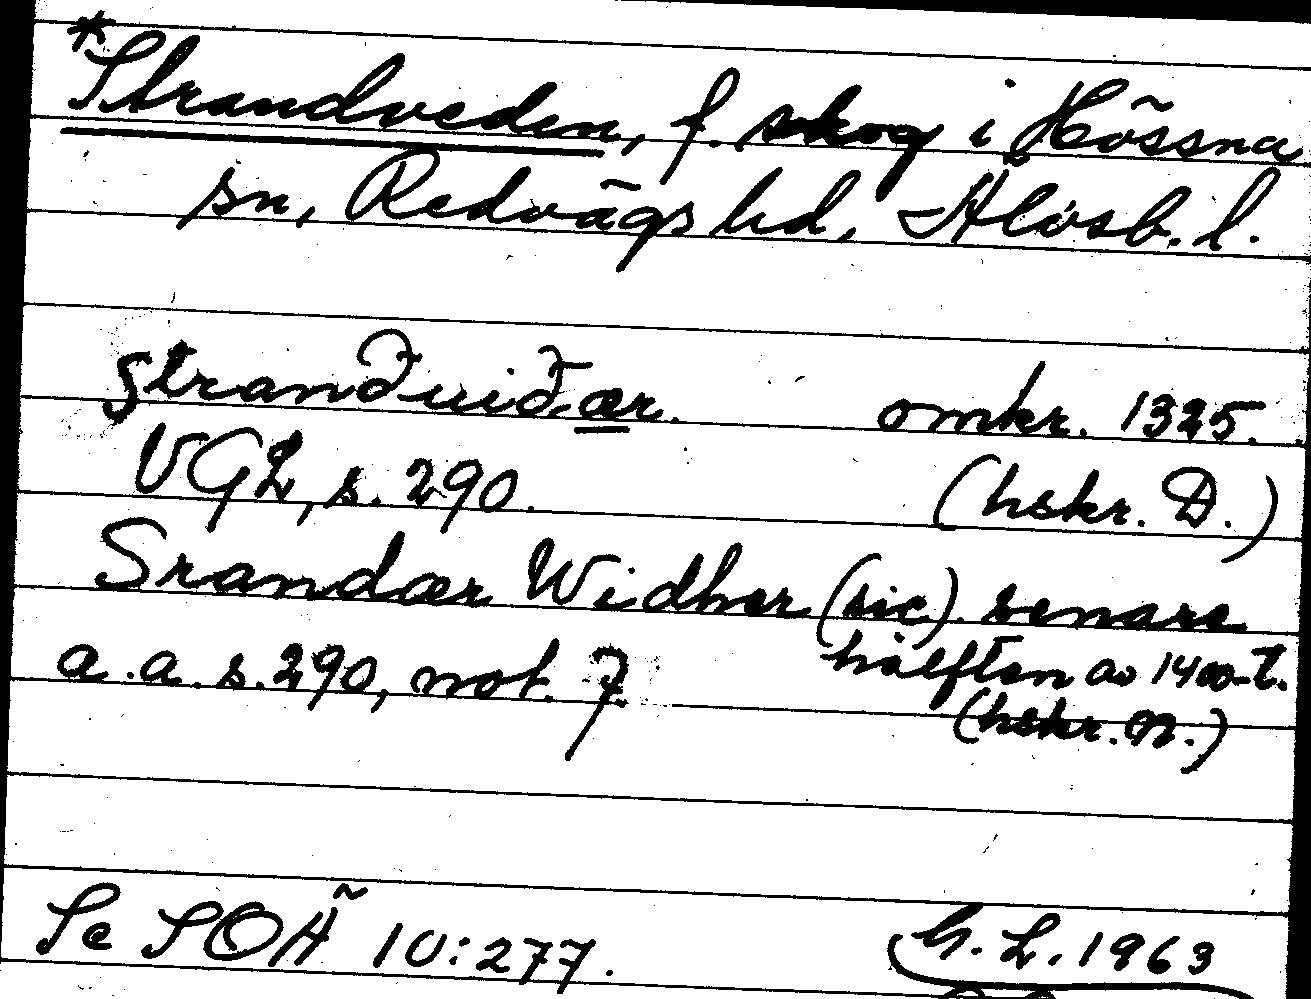 *Strandveden, f. skog i Hössna
sn, Redvägs hd, Älvsb. l.
stranðuiðær. omkr. 1325.
VGL, s. 290. (hskr. D.)
Srandær Widhær (sic). senare
hälften av 1400-t.
a. a. s. 290, not. 7. (hskr. N.)
Se SOÄ 10:277. G. L. 1963